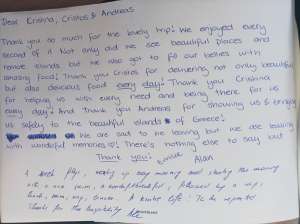 Dear Cristina, Cristos & Andreas
Thank you so much for the lovely trip! We enjoyed every
second of it. Not only did we see beautiful places and
remote islands but we also got to fill our bellies with
amazing food! Thank you Cristos for delivering not only beautiful
but also delicious food every day! Thank you Cristina
for helping us with every need and being there for us
every day! And thank you Andreas for showing us & bringing
us safely to the beautiful islands of Greece!
We are sad to be leaving but we are leaving
with wonderful memories! There's nothing else to say but
Thank you!
Alan
A week
swim, a wonderful breakfast, followed by a nap,
lunch, swim, nap, dinner. A
Thanks for the hospitality